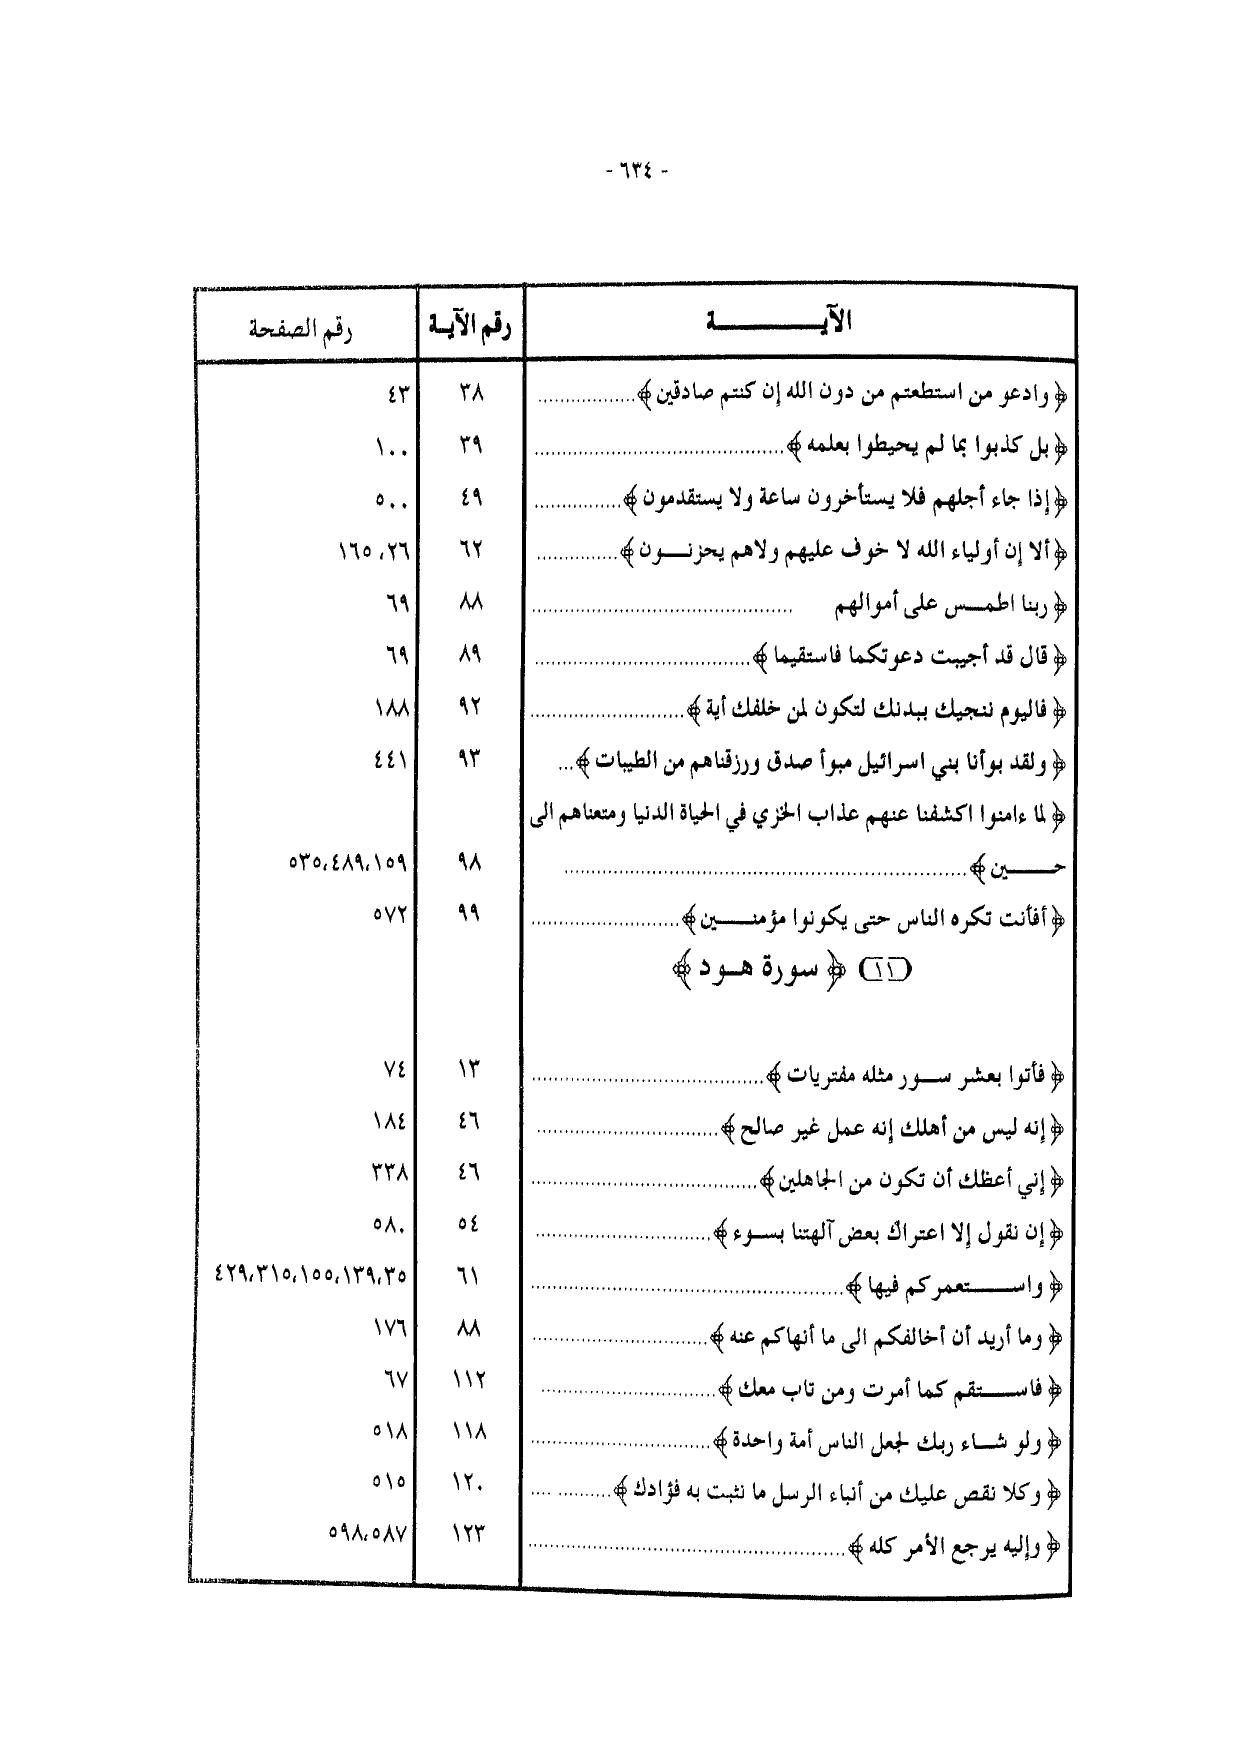 - ٦٣٤ -
الآيـــــــــــة رقم الآيـة رقم الصفحة
﴿ وادعو من استطعتم من دون الله إن كنتم صادقين ﴾................. ٣٨ ٤٣
﴿ بل كذبوا بما لم يحيطوا بعلمه ﴾............................................ ٣٩ ١٠٠
﴿ إذا جاء أجلهم فلا يستأخرون ساعة ولا يستقدمون ﴾............... ٤٩ ٥٠٠
﴿ ألا إن أولياء الله لا خوف عليهم ولاهم يحزنــون ﴾.............. ٦٢ ٢٦، ١٦٥
﴿ ربنا اطمــس على أموالهم ............................................. ٨٨ ٦٩
﴿ قال قد أجيبت دعوتكما فاستقيما ﴾..................................... ٨٩ ٦٩
﴿ فاليوم ننجيك ببدنك لتكون لمن خلفك أية ﴾........................... ٩٢ ١٨٨
﴿ ولقد بوأنا بني اسرائيل مبوأ صدق ورزقناهم من الطيبات ﴾... ٩٣ ٤٤١
﴿ لما ءامنوا اكشفنا عنهم عذاب الخزي في الحياة الدنيا ومتعناهم الى
حــــــين ﴾...................................................................... ٩٨ ١٥٩،٤٨٩،٥٣٥
﴿ أفأنت تكره الناس حتى يكونوا مؤمنــــين ﴾......................... ٩٩ ٥٧٢
(١١) ﴿ سورة هــود ﴾
﴿ فأتوا بعشر ســور مثله مفتريات ﴾....................................... ١٣ ٧٤
﴿ إنه ليس من أهلك إنه عمل غير صالح ﴾............................... ٤٦ ١٨٤
﴿ إني أعظك أن تكون من الجاهلين ﴾....................................... ٤٦ ٣٣٨
﴿ إن نقول إلا اعتراك بعض آلهتنا بســوء ﴾............................... ٥٤ ٥٨٠
﴿ واســــــتعمركم فيها ﴾...................................................... ٦١ ٣٥،١٣٩،١٥٥،٣١٥،٤٢٩
﴿ وما أريد أن أخالفكم الى ما أنهاكم عنه ﴾............................... ٨٨ ١٧٦
﴿ فاســــتقم كما أمرت ومن تاب معك ﴾............................... ١١٢ ٦٧
﴿ ولو شــاء ربك لجعل الناس أمة واحدة ﴾............................... ١١٨ ٥١٨
﴿ وكلا نقص عليك من أنباء الرسل ما نثبت به فؤادك ﴾......... .... ١٢٠ ٥١٥
﴿ وإليه يرجع الأمر كله ﴾...................................................... ١٢٣ ٥٨٧،٥٩٨